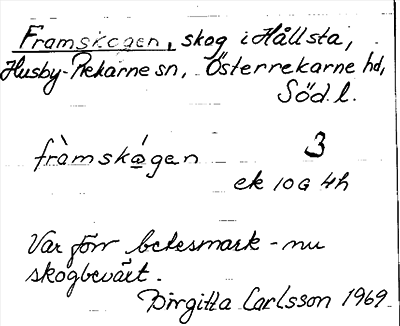 Framskogen, skog i Hållsta,
Husby-Rekarne sn, Österrekarne hd,
Södl.
fràmskǻgen 3
ek 10 G 4h
Var förr betesmark - nu
skogbeväxt.
Birgitta Carlsson 1969